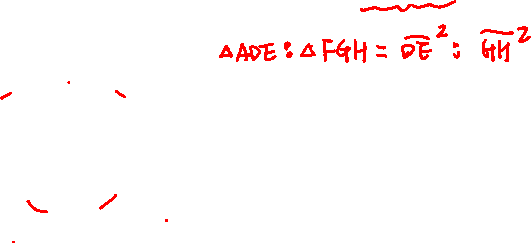 △ADE : △FGH = \overline{DE}² : \overline{GH}²